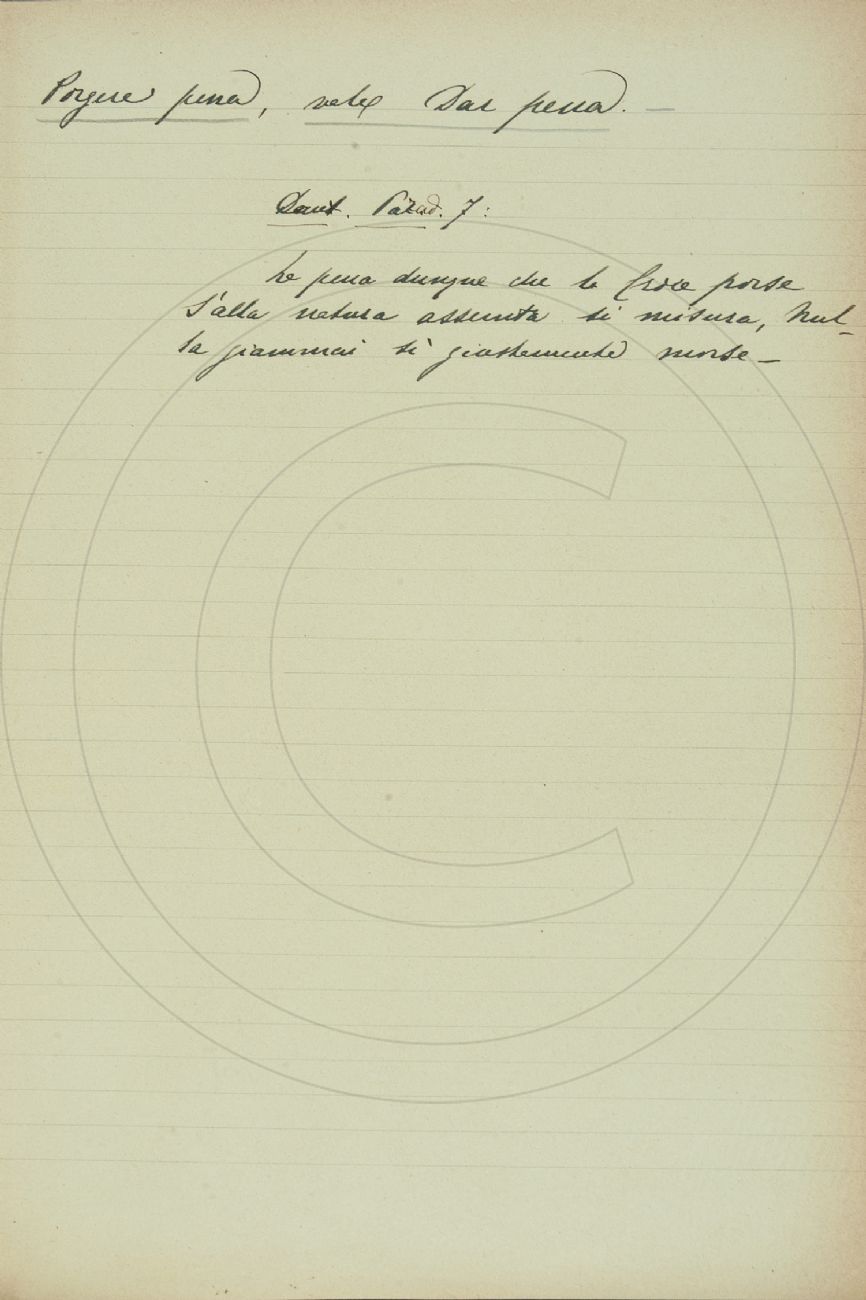 Porgere pena, vale Dar pena. —
Dant. Parad. 7:
La pena dunque che la Croce porse
S'alla natura assunta si misura, Nul-
la giammai sì giustamente morse —